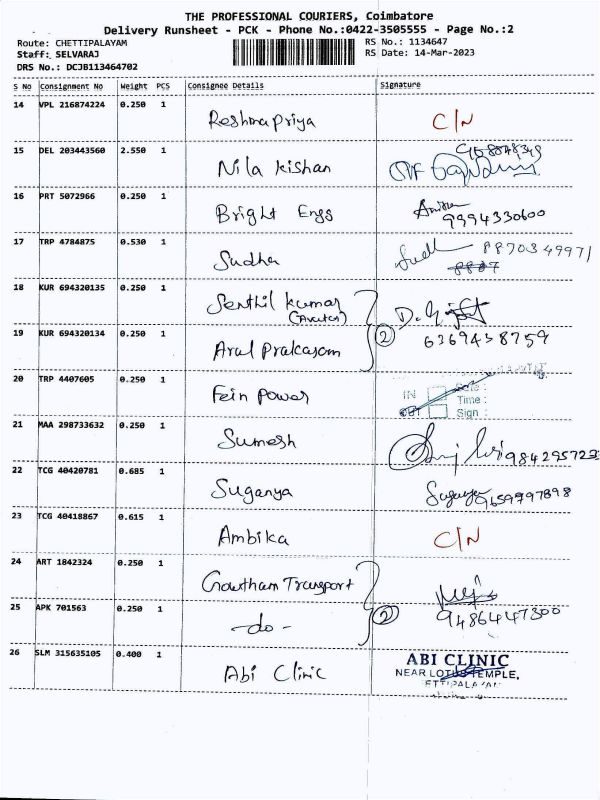 THE PROFESSIONAL COURIERS, Coimbatore
Delivery Runsheet - PCK - Phone No.:0422-3505555 - Page No.:2
Route: CHETTIPALAYAM RS No.: 1134647
Staff: SELVARAJ RS Date: 14-Mar-2023
DRS No.: DCJB113464702
S No Consignment No Weight PCS Consignee Details Signature
14 VPL 216874224 0.250 1 Reshma Priya C/N
15 DEL 203443560 2.550 1 Nila Kishan
16 PRT 5072966 0.250 1 Bright Engs 9994330600
17 TRP 4784875 0.530 1 Sudha 8870349971
18 KUR 694320135 0.250 1 Senthil Kumar
19 KUR 694320134 0.250 1 Arul Prakasam 2 6369438759
20 TRP 4407605 0.250 1 Fein Power IN Date : Time : OUT Sign :
21 MAA 298733632 0.250 1 Sumesh
22 TCG 40420781 0.685 1 Suganya Suganya 9659797898
23 TCG 40418867 0.615 1 Ambika C/N
24 ART 1842324 0.250 1 Gowtham Transport
25 APK 701563 0.250 1 -do- 2 9486447300
26 SLM 315635105 0.400 1 Abi Clinic ABI CLINIC
NEAR LOTUS TEMPLE,